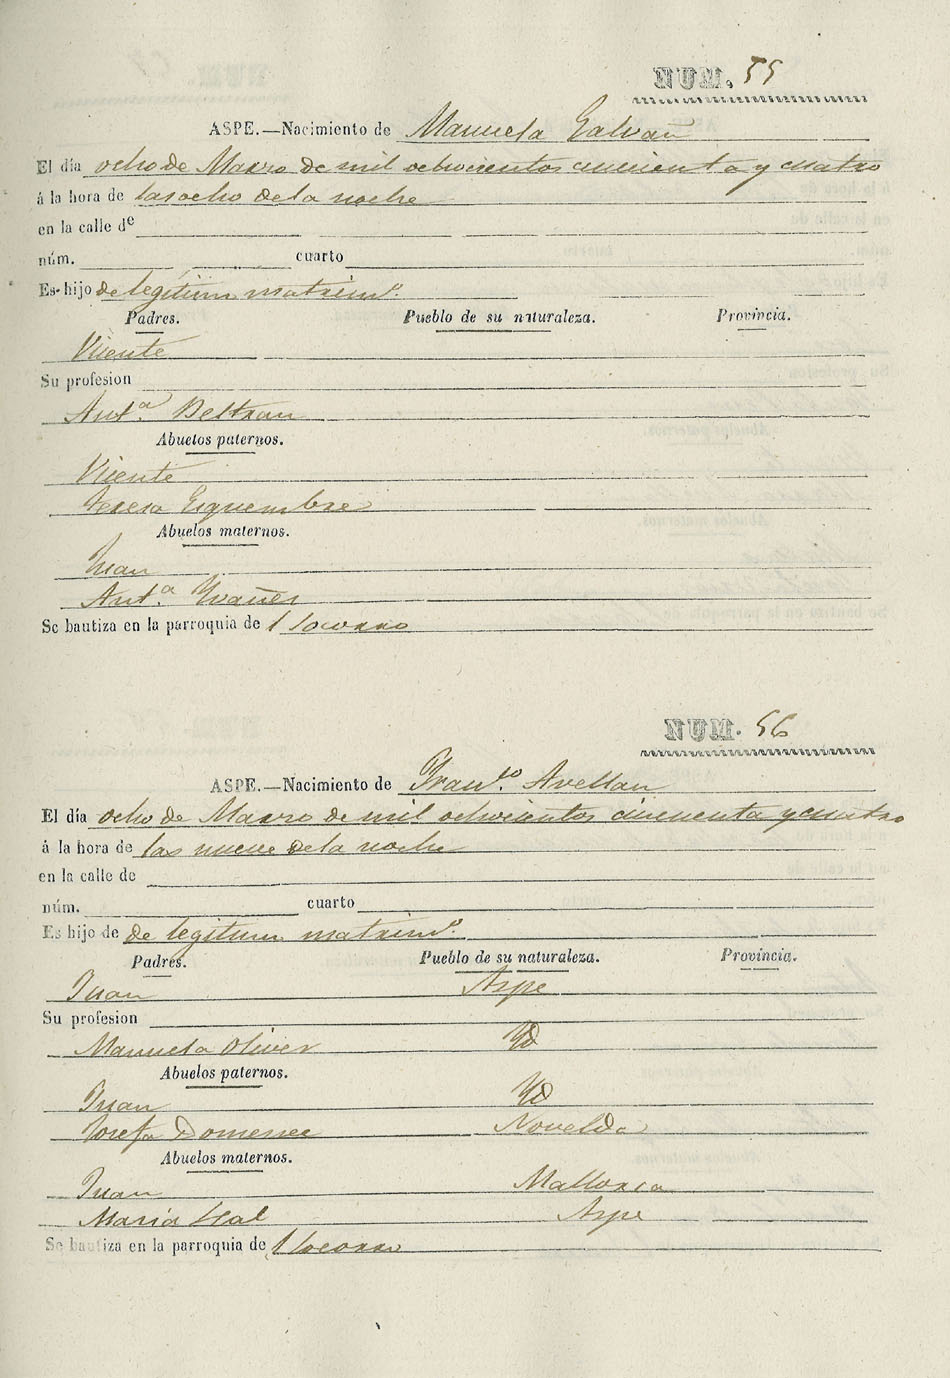 NUM. 55
ASPE.—Nacimiento de Manuela Galvañ
El día ocho de Marzo de mil ochocientos cincuenta y cuatro
á la hora de las ocho de la noche
en la calle de
núm. cuarto
Es hijo de legitim matrimo.
Padres. Pueblo de su naturaleza. Provincia.
Vicente
Su profesion
Anta. Beltran
Abuelos paternos.
Vicente
Teresa Esquembre
Abuelos maternos.
Juan
Anta. Yvañes
Se bautiza en la parroquia de l Socorro
NUM. 56
ASPE.—Nacimiento de Franco. Avellan
El día ocho de Marzo de mil ochocientos cincuenta y cuatro
á la hora de las nueve de la noche
en la calle de
núm. cuarto
Es hijo de de legitim matrimo.
Padres. Pueblo de su naturaleza. Provincia.
Juan Aspe
Su profesion
Manuela Oliver Yd
Abuelos paternos.
Juan Yd
Josefa Domenec Novelda
Abuelos maternos.
Juan Mallorca
Maria Aspe
Se bautiza en la parroquia de l Socorro